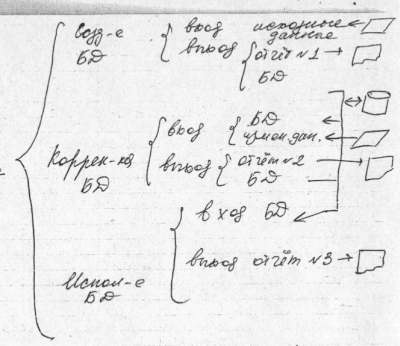 Созд-е
БД
вход исходные
данные
выход отчёт №1
БД
Коррек-ка
БД
вход БД
измен. дан.
выход отчёт №2
БД
вход БД
Испол-е
БД
выход отчёт №3